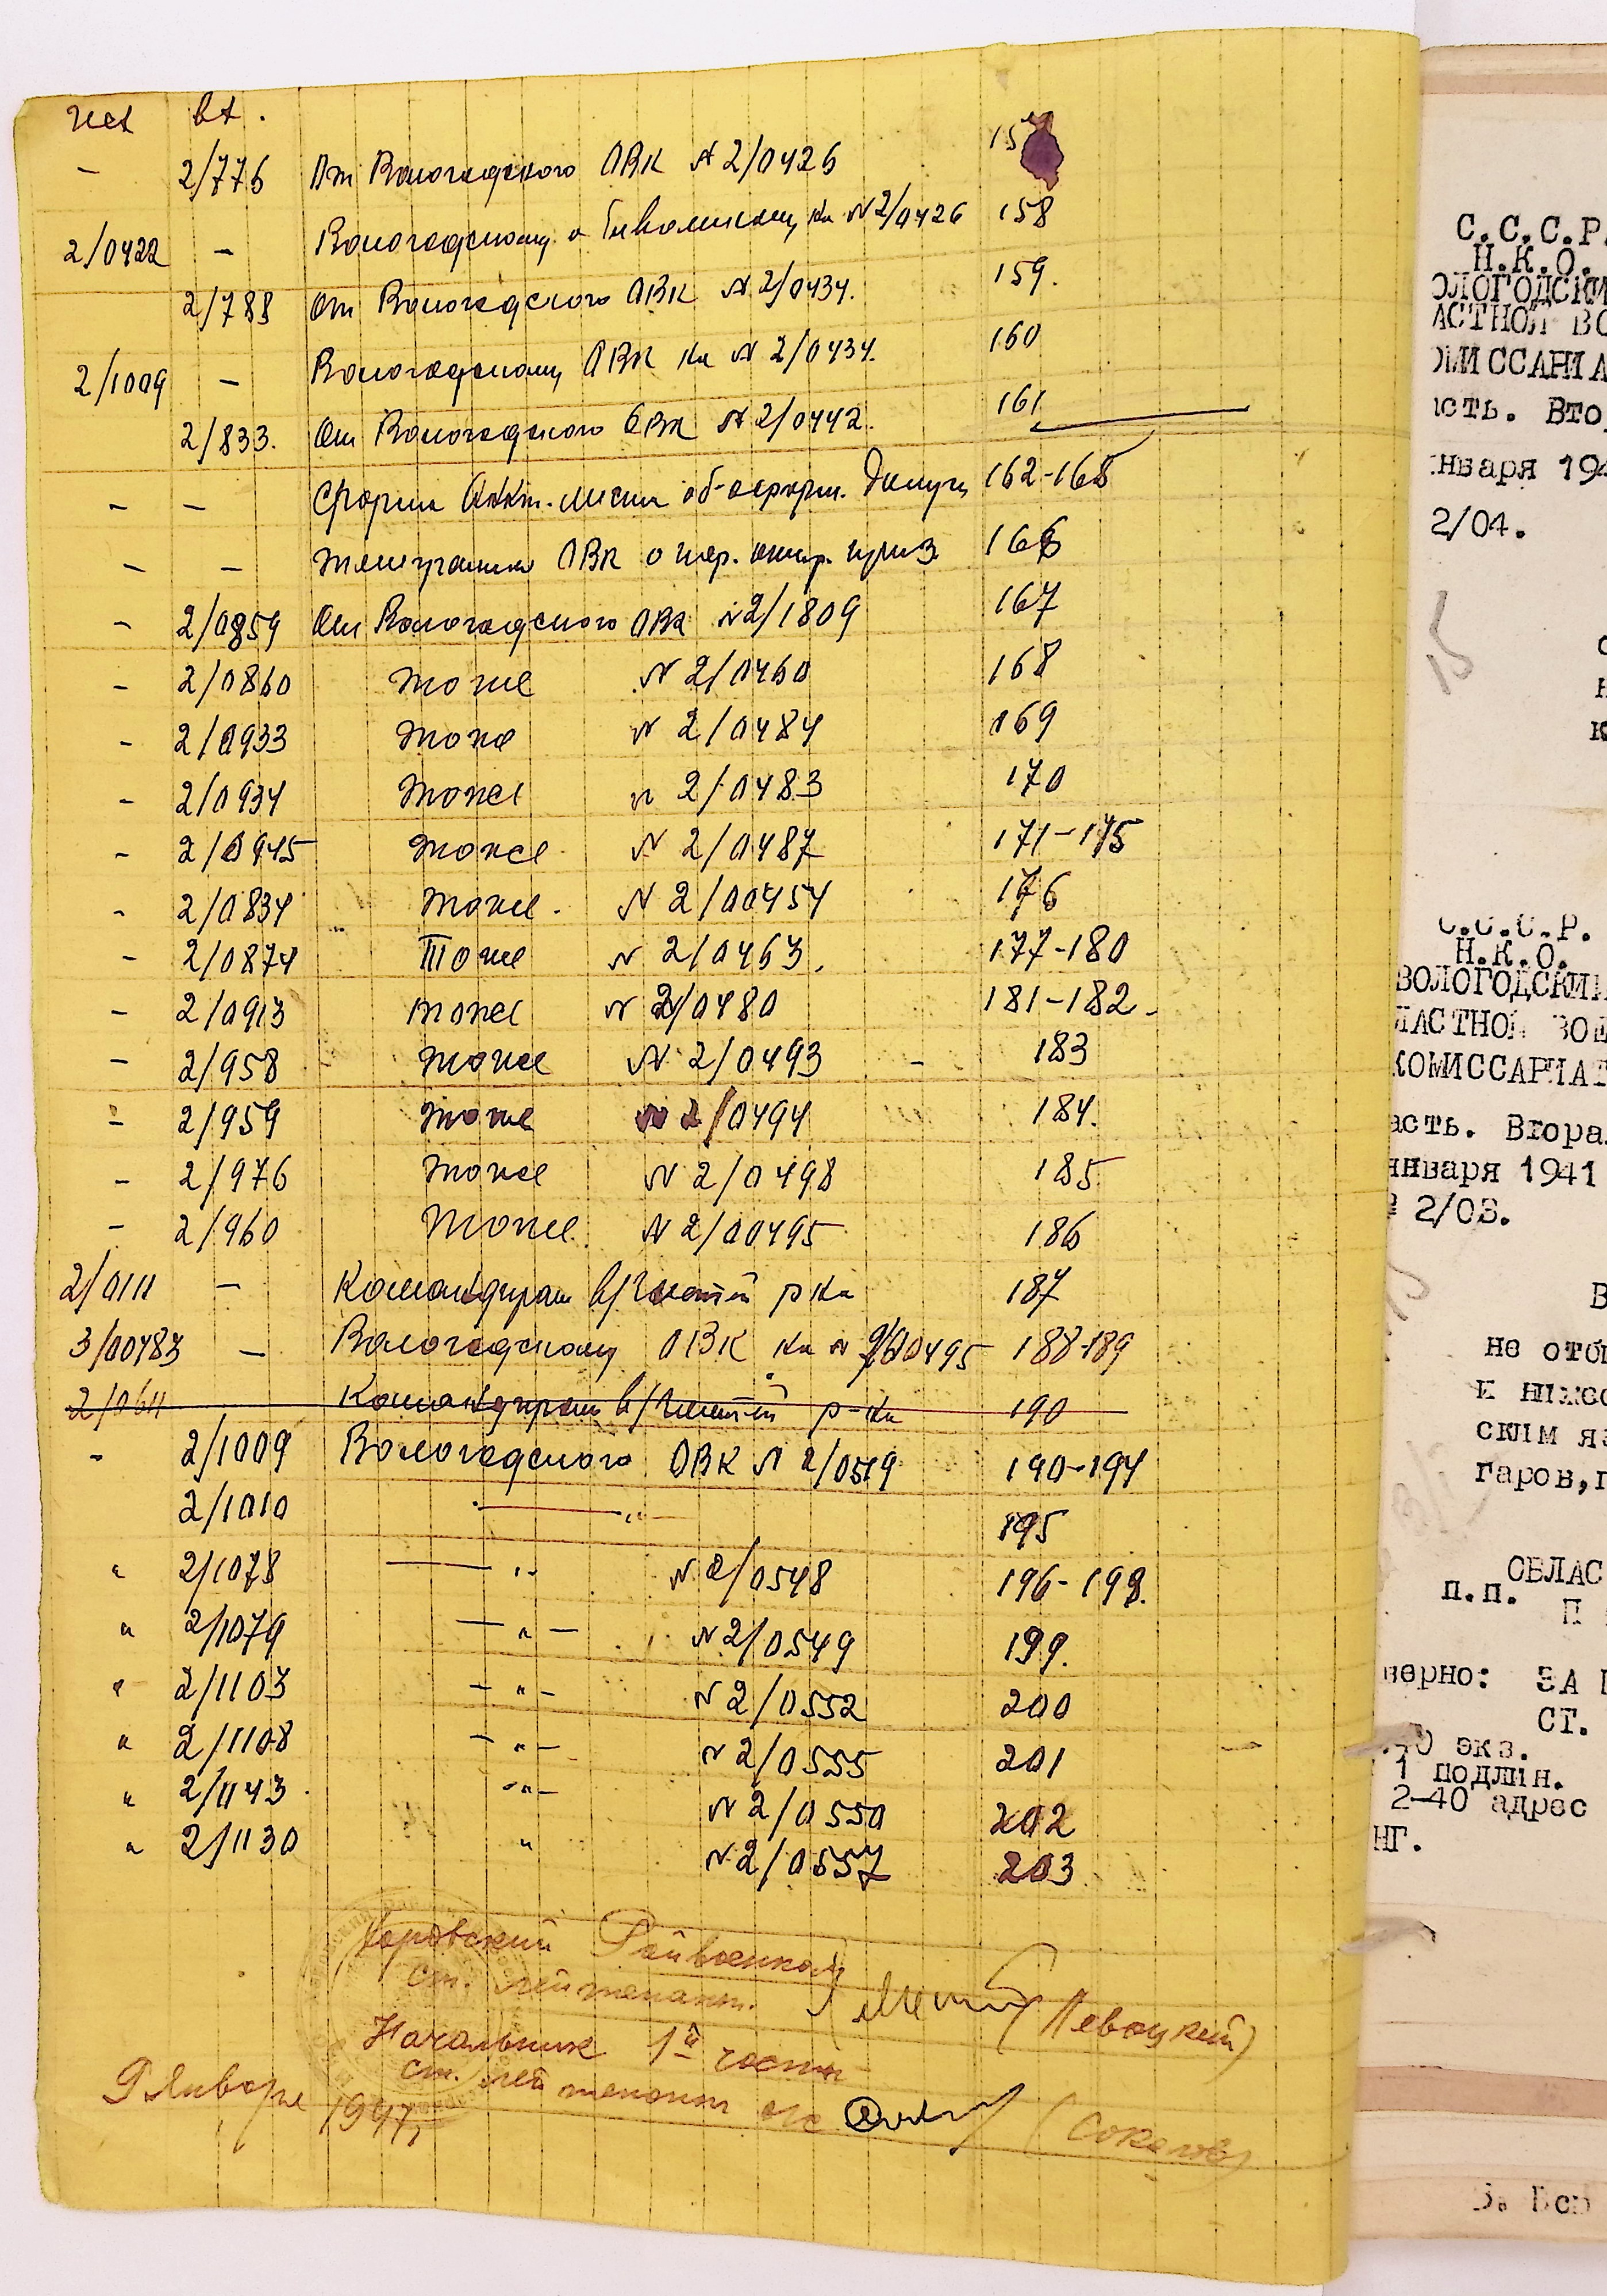 исх вх.
- 2/776 От Вологодского ОВК № 2/0426 157
2/0422 - Вологодскому на № 2/0426 158
2/788 От Вологодского ОВК № 2/0434. 159.
2/1009 - Вологодскому ОВК на № 2/0434. 160
2/833. От Вологодского ОВК № 2/0442. 161
- - Форма 162-165
- - Телеграмма ОВК о 166
- 2/0859 От Вологодского ОВК № 2/1809 167
- 2/0860 тоже № 2/0460 168
- 2/0933 тоже № 2/0484 169
- 2/0934 тоже № 2/0483 170
- 2/0945 тоже № 2/0487 171-175
- 2/0834 тоже. № 2/00454 176
- 2/0874 Тоже № 2/0463. 177-180
- 2/0913 тоже № 2/0480 181-182.
- 2/958 тоже № 2/0493 - 183
- 2/959 тоже № 2/0494 184.
- 2/976 тоже № 2/0498 185
- 2/960 Тоже. № 2/00495 186
2/0111 - Командирам в/частей р-ка 187
3/00783 - Вологодскому ОВК на № 2/00495 188-189
2/0611 Командирам в/частей р-ка 190
" 2/1009 Вологодского ОВК № 2/0519 190-194
2/1010 — " — 195
" 2/1078 — " № 2/0548 196-198.
" 2/1079 — " — № 2/0549 199.
" 2/1103 — " — № 2/0552 200
" 2/1108 — " — № 2/0555 201
" 2/1143 - " - № 2/0550 202
" 2/1130 " № 2/0557 203
Райвоенком
ст. лейтенант. (Левоцкий)
Начальник 1й части
ст. лейтенант (Соколов)
9 Января 1941 г.
С.С.С.Р.
Н.К.О.
ОЛОГОДСКИ
АСТНОЙ ВО
ОМИССАРИА
асть. Вто
нваря 194
2/04.
15
С.С.С.Р.
Н.К.О.
ВОЛОГОДСКИЙ
ЛАСТНОЙ ВОЕ
КОМИССАРИАТ
асть. Вторая
января 1941
№ 2/03.
В
не отоб
и нижес
ским яз
гаров,п
ОБЛАС
п.п. П
верно: ЗА
СТ.
40 экз.
1 подлин.
2-40 адрес
НГ.